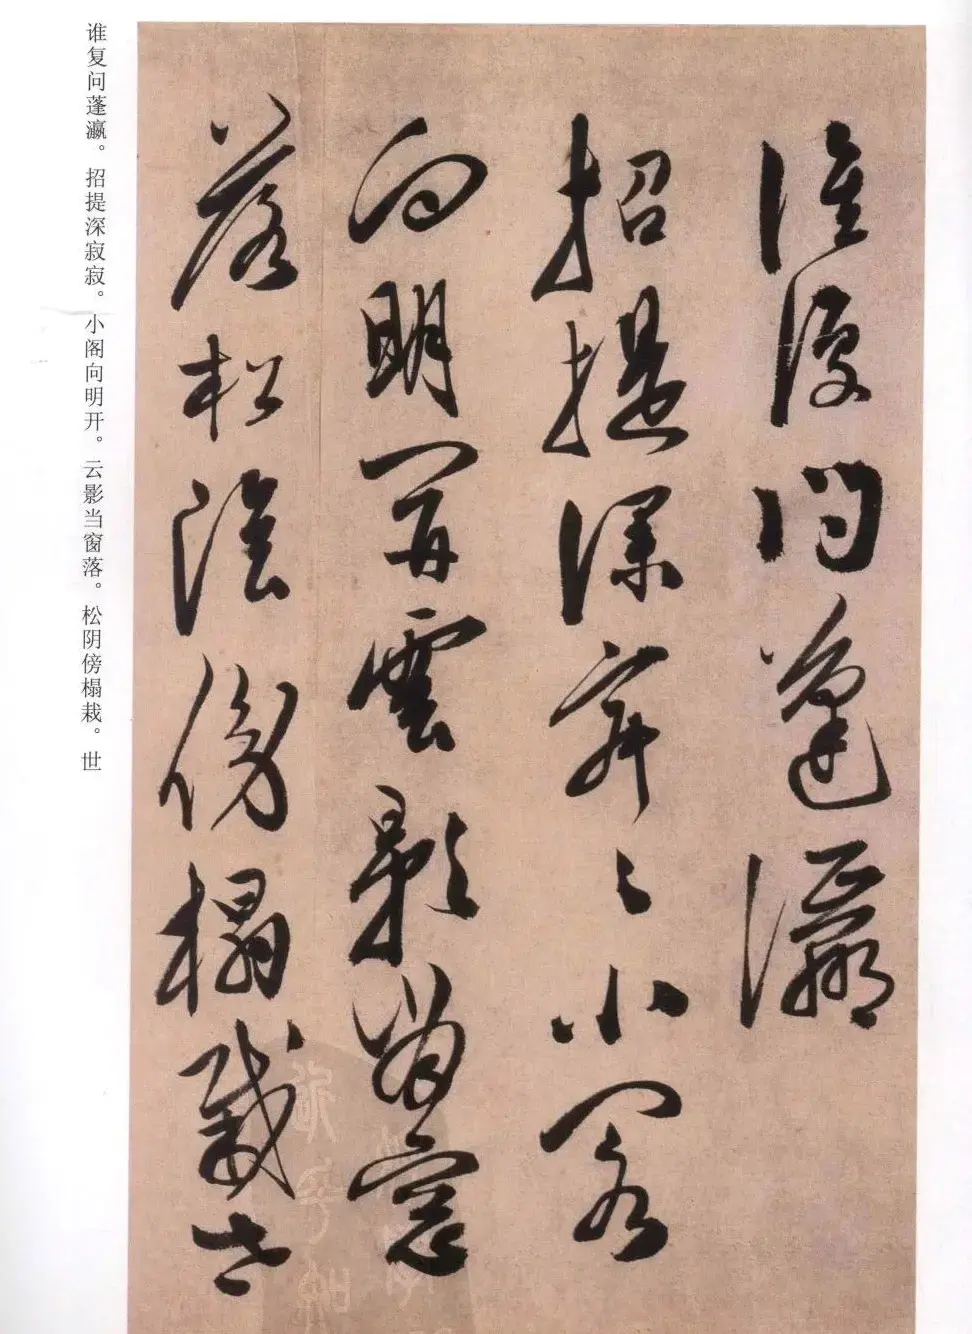 誰復問蓬瀛
招提深寂〻小閣
向明開雲影當窗
落松陰傍榻栽世
谁复问蓬瀛。招提深寂寂。小阁向明开。云影当窗落。松阴傍榻栽。世